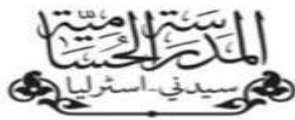 المدرسة الحسامية
سيدني - استرليا